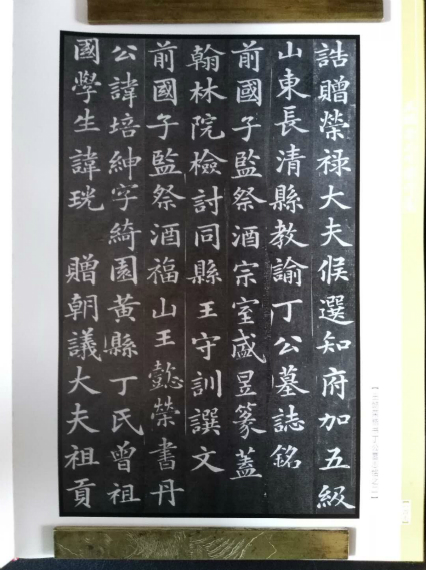 誥贈榮禄大夫候選知府加五級
山東長清縣教諭丁公墓誌銘
前國子監祭酒宗室盛昱篆蓋
翰林院檢討同縣王守訓譔文
前國子監祭酒福山王懿榮書丹
公諱培紳字綺園黃縣丁氏曾祖
國學生諱珖 贈朝議大夫祖貢